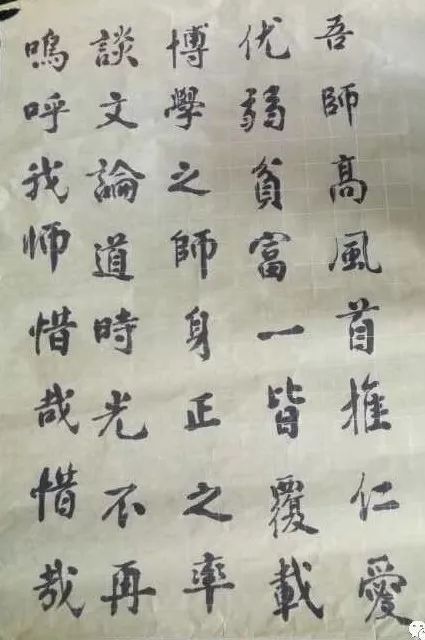 吾師髙風首推仁愛
优弱貧富一皆覆載
博學之師身正之率
談文論道時光不再
鳴呼我师惜哉惜哉